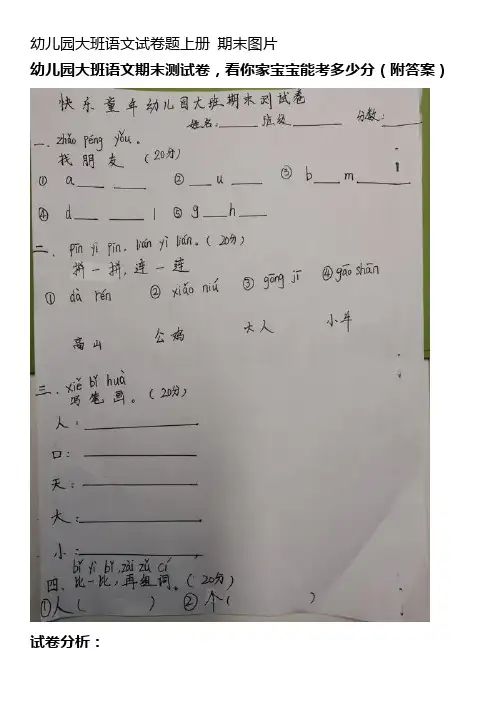 幼儿园大班语文试卷题上册 期末图片
幼儿园大班语文期末测试卷，看你家宝宝能考多少分（附答案）
快乐童年幼儿园大班期末测试卷
姓名：____ 班级______ 分数：____
zhǎo péng yǒu
一、找朋友。（20分）
① a___ ___ ② ___u___ ③ b___m______
④ d___ ____ l ⑤ g___h___
pīn yi pīn, lián yì lián。（20分）
二、拼一拼，连一连
① dà rén ② xiǎo niú ③ gōng jī ④ gāo shān
高山 公鸡 大人 小牛
xiě bǐ huà
三、写笔画。（20分）
人：____________
口：____________
天：____________
大：____________
小：____________
bǐ yi bǐ, zài zǔ cí
四、比一比，再组词。（20分）
①人（ ） ②个（ ）
试卷分析：